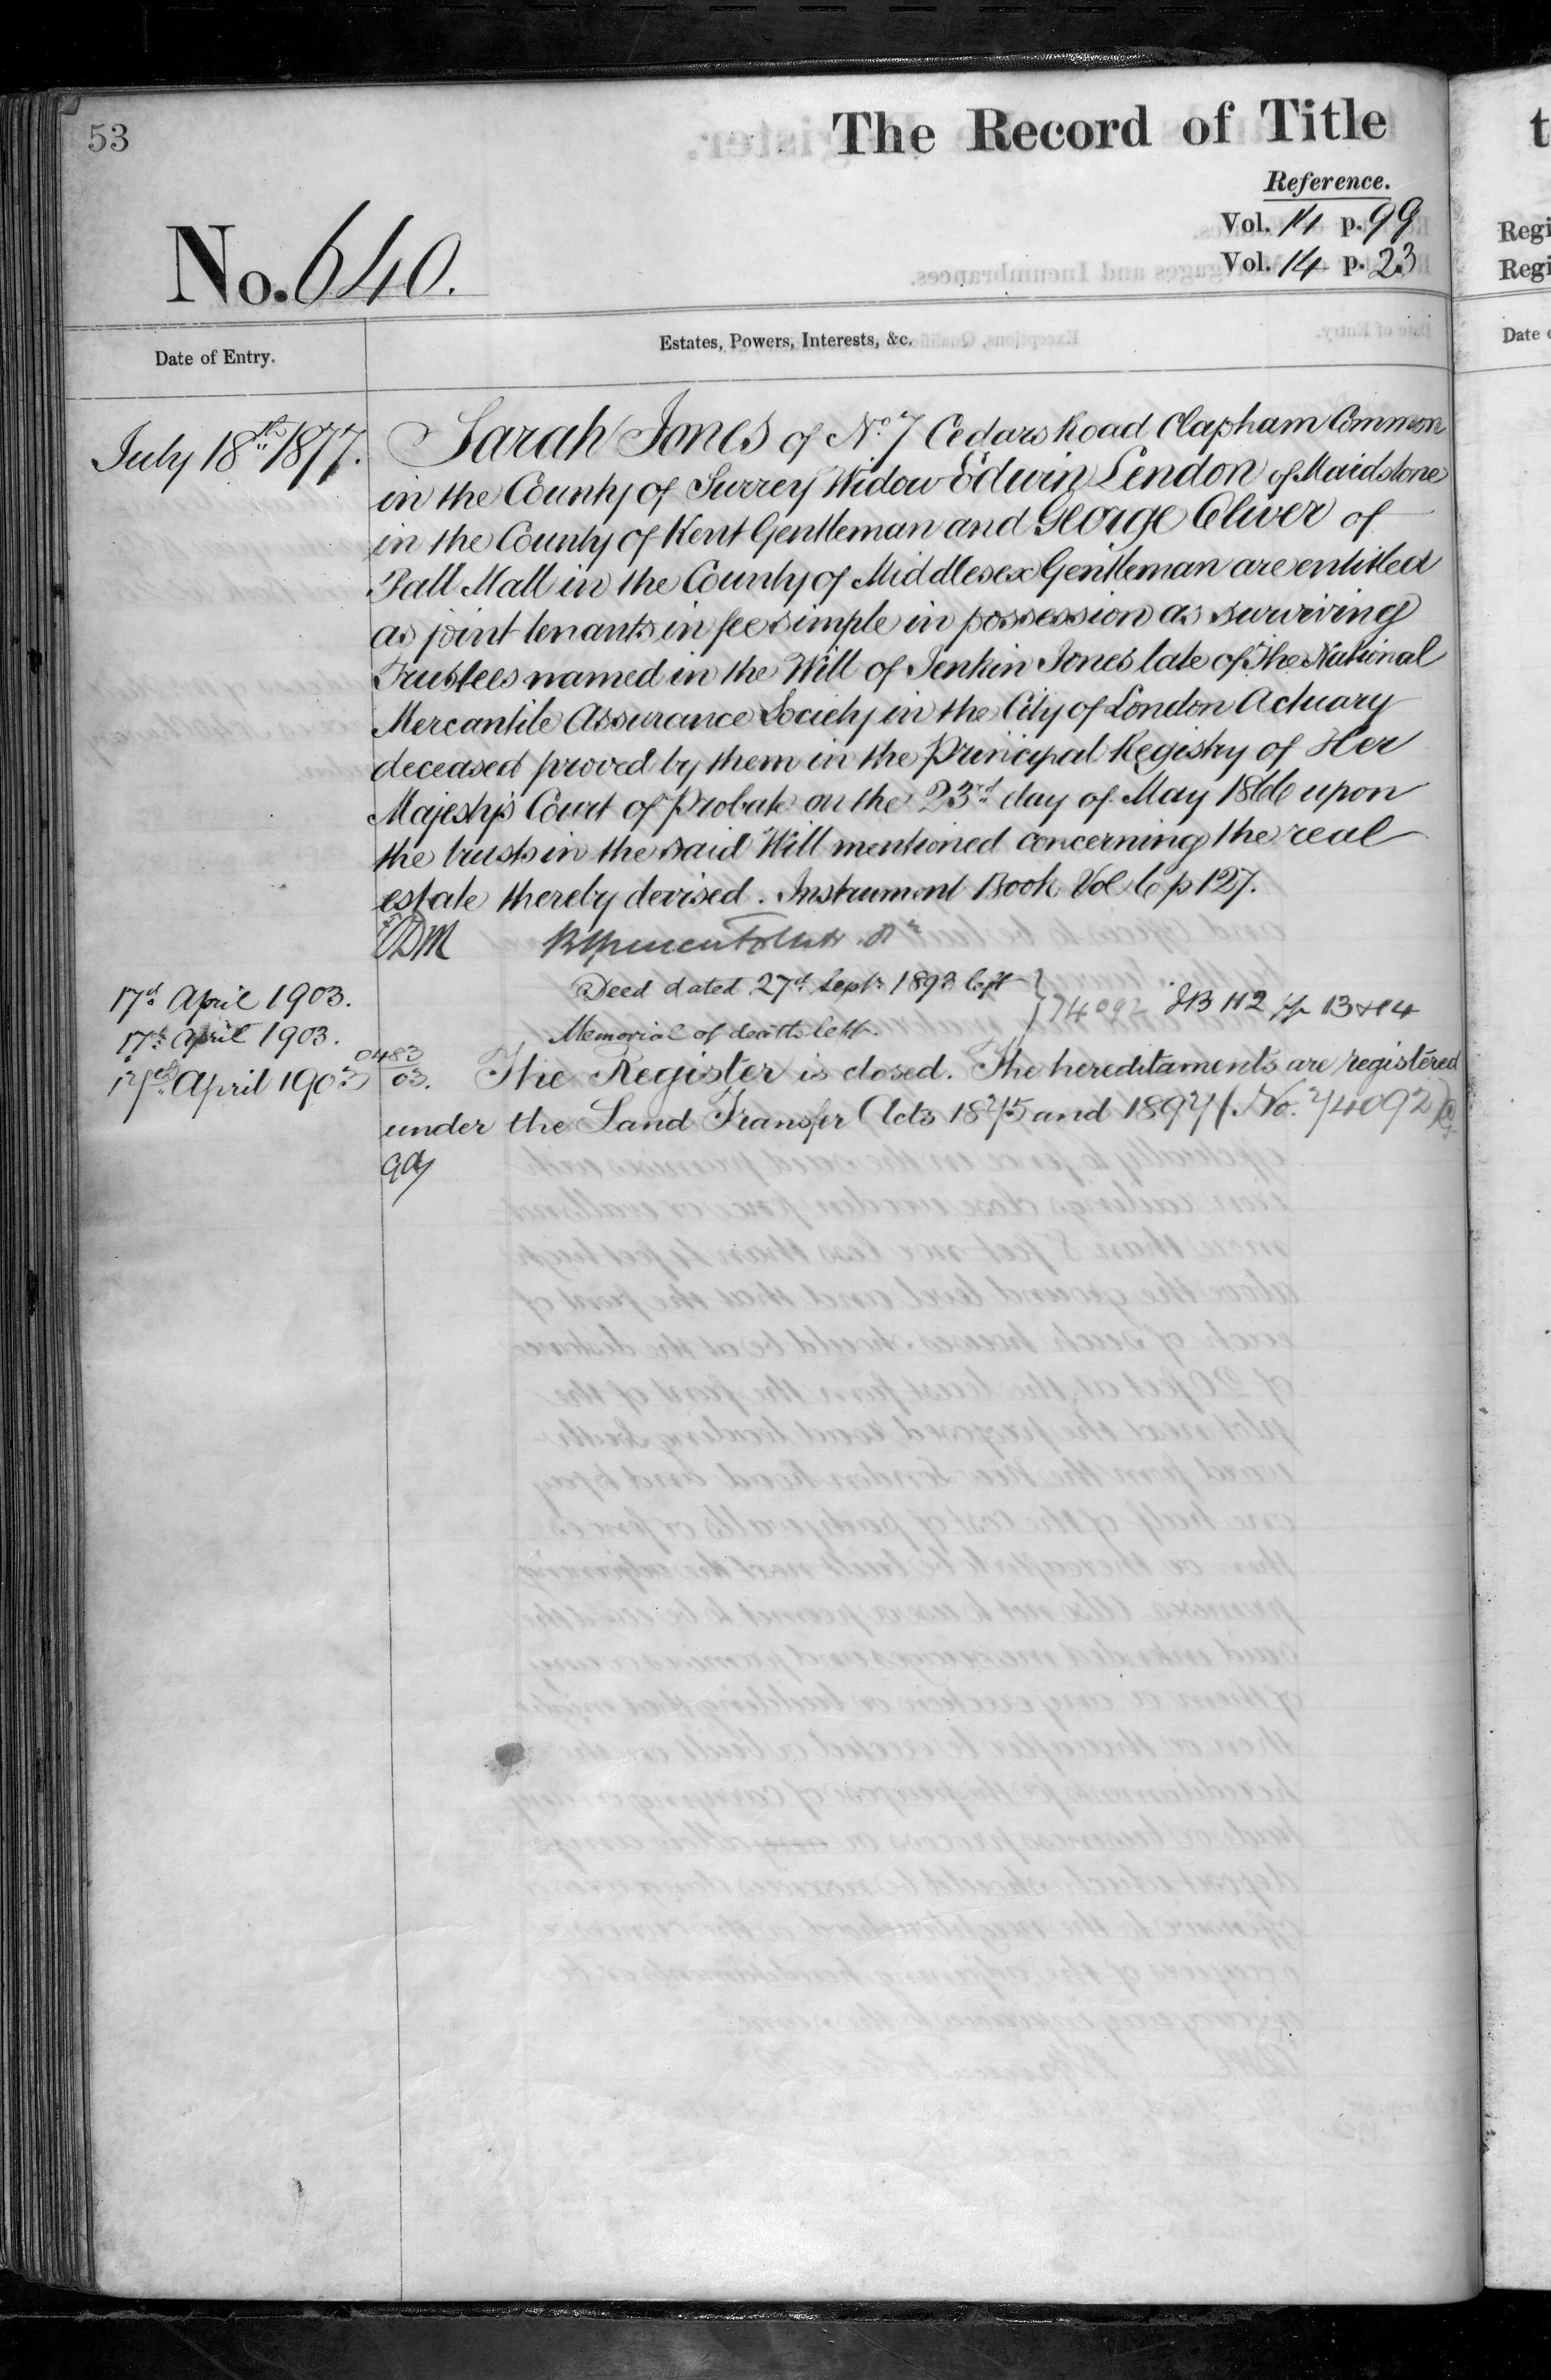 53
The Record of Title
Reference.
Vol. 14 p. 99
Vol. 14 p. 23
No. 640.
Date of Entry.
Estates, Powers, Interests, &c.
July 18th 1877.
Sarah Jones of No. 7 Cedars Road Clapham Common
in the County of Surrey Widow Edwin Lendon of Maidstone
in the County of Kent Gentleman and George Cliver of
Pall Mall in the County of Middlesex Gentleman are entitled
as joint tenants in fee simple in possession as surviving
Trustees named in the Will of Jenkin Jones late of The National
Mercantile Assurance Society in the City of London Actuary
deceased proved by them in the Principal Registry of Her
Majesty's Court of Probate on the 23rd day of May 1866 upon
the trusts in the said Will mentioned concerning the real
estate thereby devised. Instrument Book Vol 6 p 127.
17th April 1903.
Deed dated 27th Sept. 1893 left
17th April 1903.
Memorial of death left.
} 74092 IB 112 pp 13 & 14
17th April 1903
0483
03.
The Register is closed. The hereditaments are registered
under the Land Transfer Acts 1875 and 1897 (No. 74092)